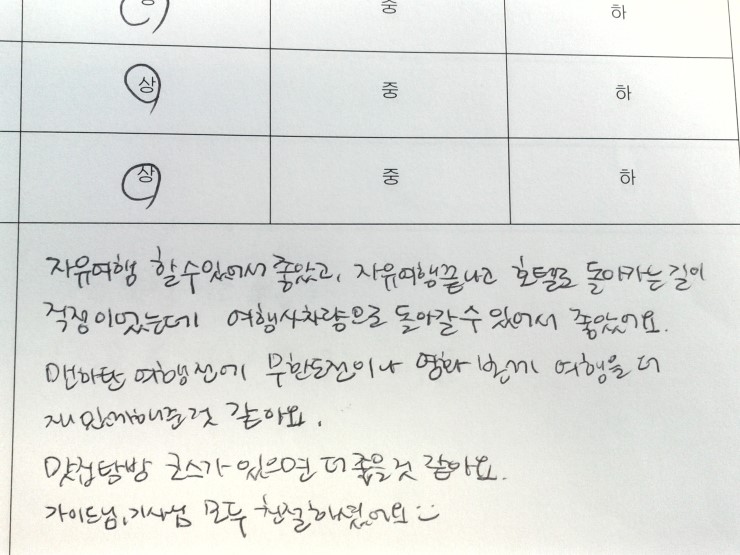 상 중 하
상 중 하
상 중 하
자유여행 할 수 있어서 좋았고, 자유여행끝나고 호텔로 돌아가는 길이
걱정이었는데 여행사차량으로 돌아갈 수 있어서 좋았어요.
맨하탄 여행전에 무한도전이나 영화 본게 여행을 더
재밌게해준것 같아요.
맛집탐방 코스가 있으면 더 좋을것 같아요.
가이드님, 기사님 모두 친절하셨어요